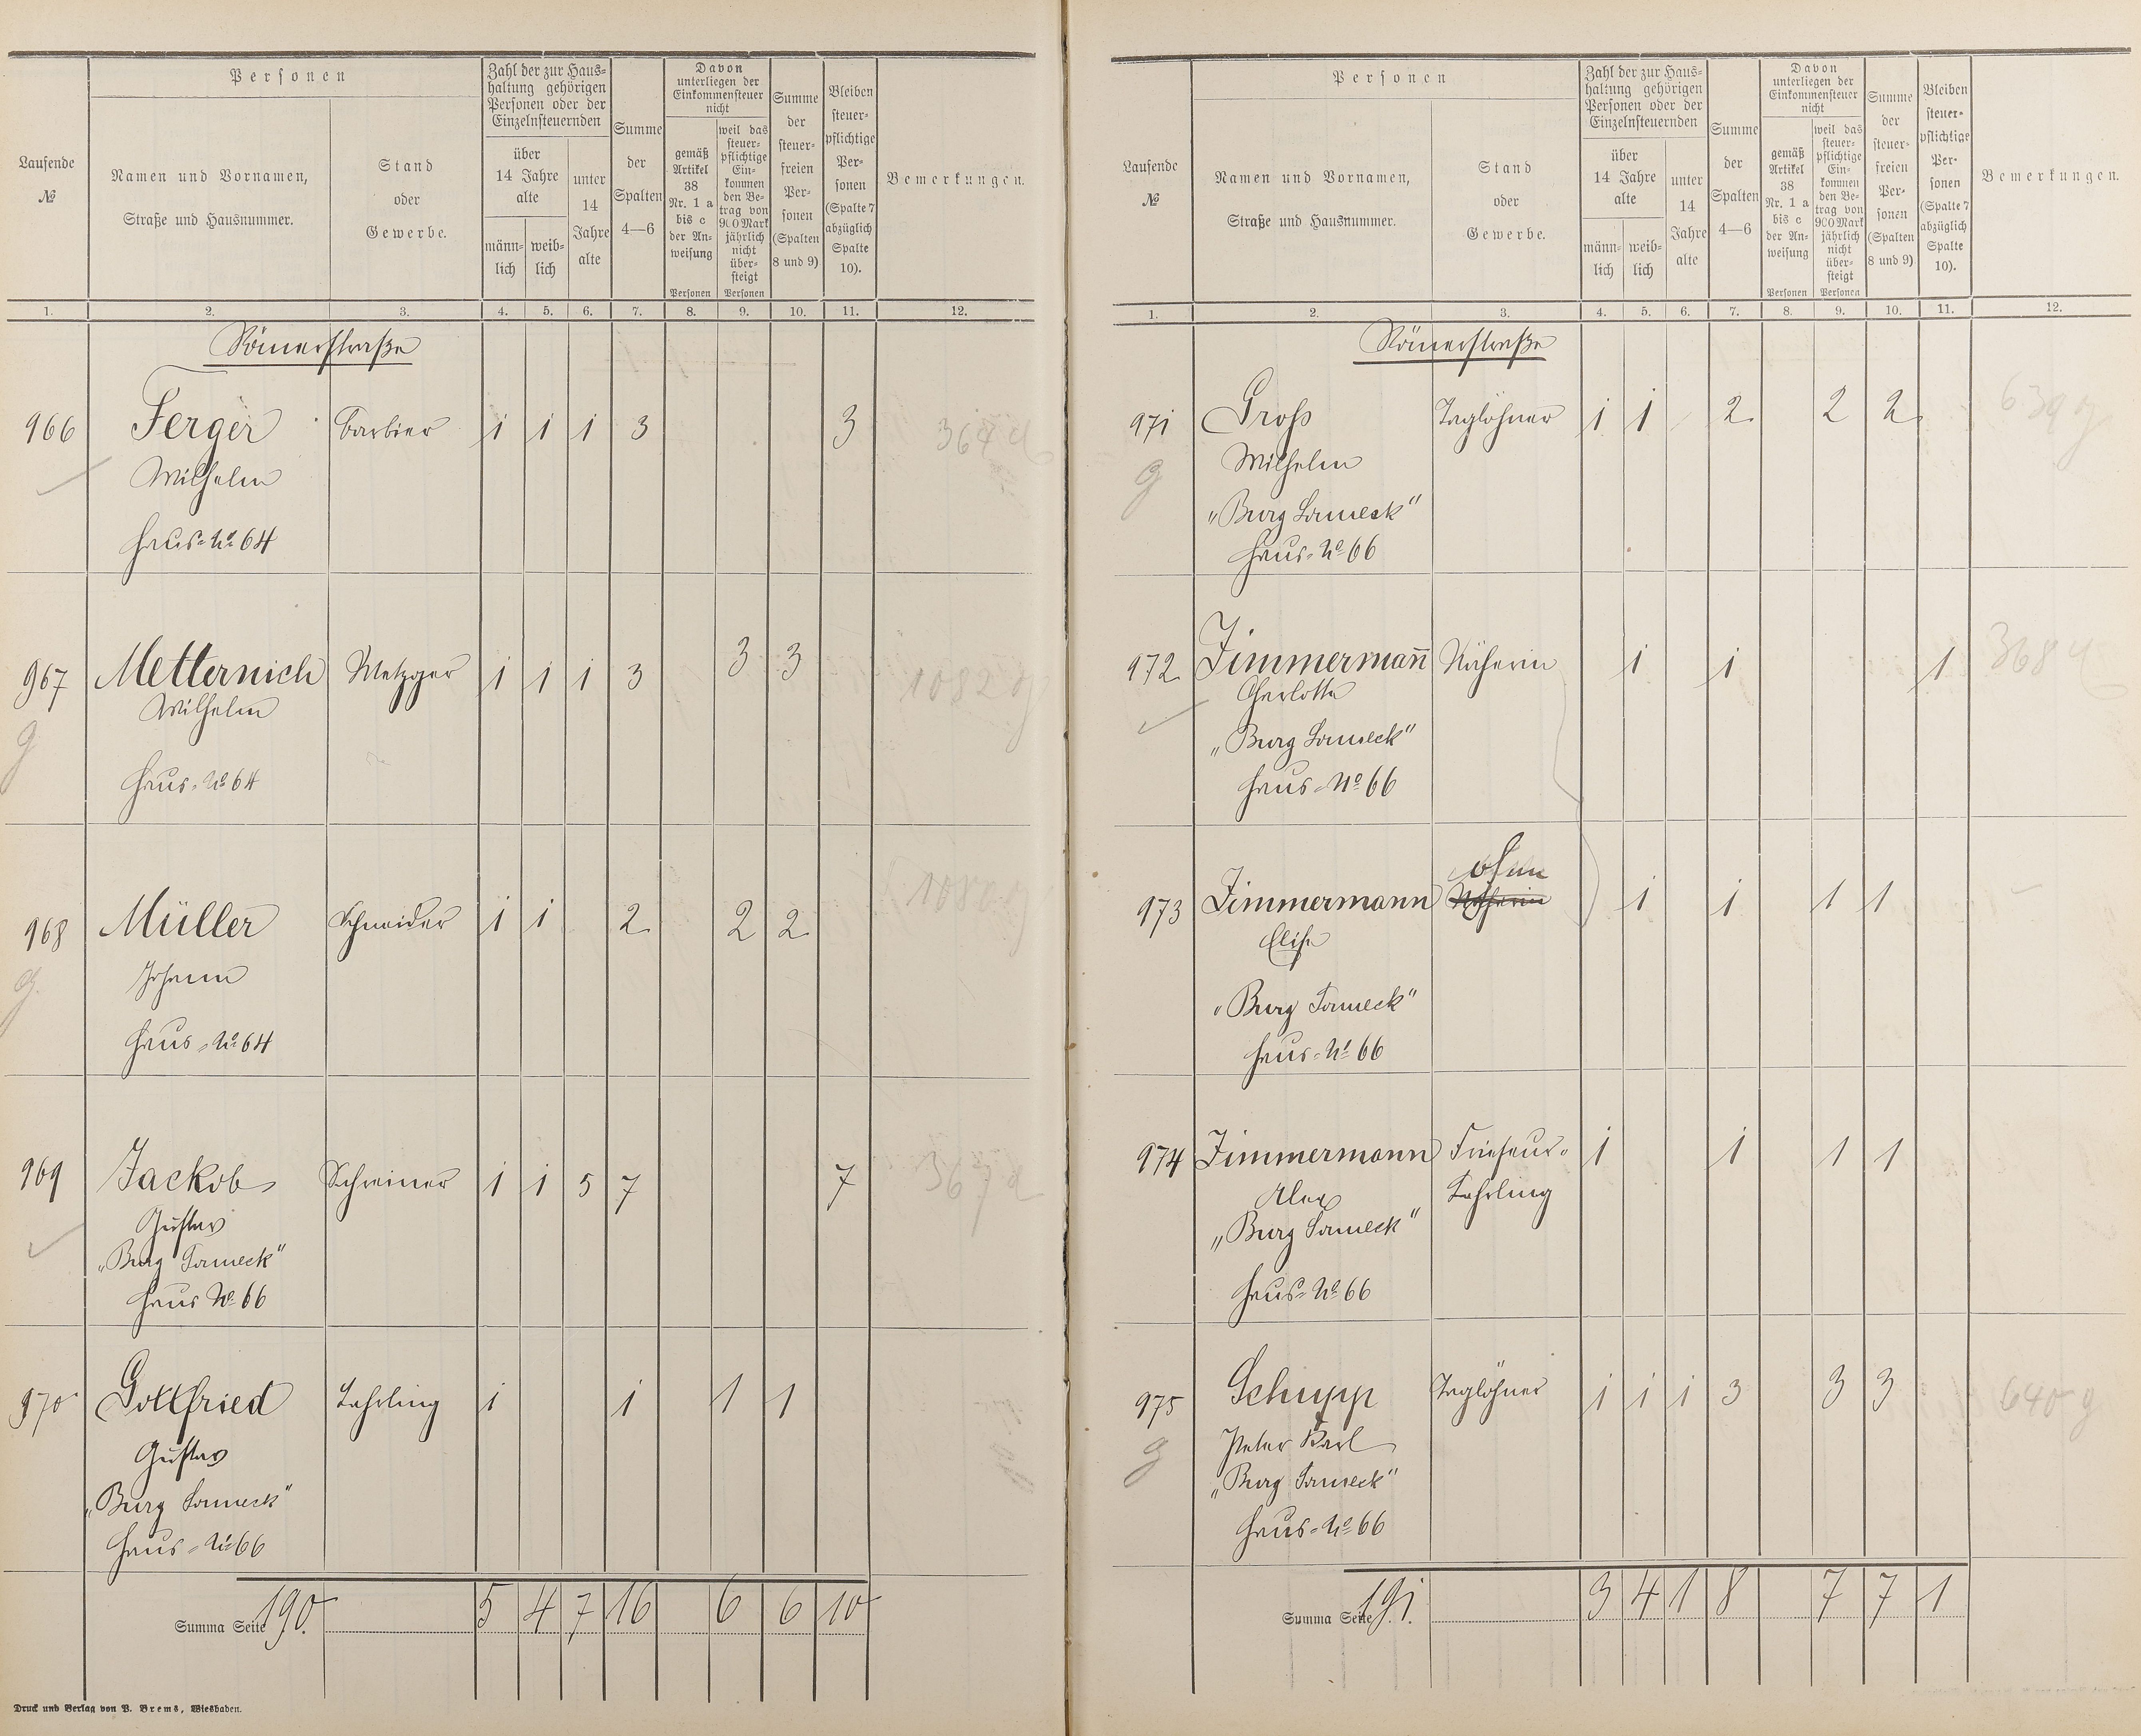 Personen
Laufende №
Namen und Vornamen, Straße und Hausnummer.
Stand oder Gewerbe.
Zahl der zur Haushaltung gehörigen Personen oder der Einzelnsteuernden
über 14 Jahre alte
männlich
weiblich
unter 14 Jahre alte
Summe der Spalten 4—6
Davon unterliegen der Einkommensteuer nicht
gemäß Artikel 38 Nr. 1 a bis c der Anweisung
Personen
weil das steuerpflichtige Einkommen den Betrag von 900 Mark jährlich nicht übersteigt
Personen
Summe der steuerfreien Personen (Spalten 8 und 9)
Bleiben steuerpflichtige Personen (Spalte 7 abzüglich Spalte 10).
Bemerkungen.
1. 2. 3. 4. 5. 6. 7. 8. 9. 10. 11. 12.
Römerstraße
966 Ferger Barbier 1 1 1 3 3 364
Wilhelm
Haus-No 64
967 Metternich Metzger 1 1 1 3 3 3 1082 g
Wilhelm
g
Haus-No 64
968 Müller Schneider 1 1 2 2 2 1080 g
g.
Johann
Haus-No 64
969 Jackob Schreiner 1 1 5 7 7 367
Gustav
„Burg Sonneck“
Haus No 66
970 Gottfried Lehrling 1 1 1 1
Gustav
„Burg Sonneck“
Haus-No 66
Summa Seite 190. 5 4 7 16 6 6 10
Druck und Verlag von P. Brems, Wiesbaden.
Personen
Laufende №
Namen und Vornamen, Straße und Hausnummer.
Stand oder Gewerbe.
Zahl der zur Haushaltung gehörigen Personen oder der Einzelnsteuernden
über 14 Jahre alte
männlich
weiblich
unter 14 Jahre alte
Summe der Spalten 4—6
Davon unterliegen der Einkommensteuer nicht
gemäß Artikel 38 Nr. 1 a bis c der Anweisung
Personen
weil das steuerpflichtige Einkommen den Betrag von 900 Mark jährlich nicht übersteigt
Personen
Summe der steuerfreien Personen (Spalten 8 und 9)
Bleiben steuerpflichtige Personen (Spalte 7 abzüglich Spalte 10).
Bemerkungen.
1. 2. 3. 4. 5. 6. 7. 8. 9. 10. 11. 12.
Römerstraße
971 Groß Taglöhner 1 1 2 2 2 639 g
Wilhelm
g
„Burg Sonneck“
Haus-No 66
972 Zimmermann Näherin 1 1 1 368
Charlotte
„Burg Sonneck“
Haus-No 66
ohne
973 Zimmermann Näherin 1 1 1 1
Elise
„Burg Sonneck“
Haus-No 66
974 Zimmermann Friseur- 1 1 1 1
Alex Lehrling
„Burg Sonneck“
Haus-No 66
975 Schupp Taglöhner 1 1 1 3 3 3 640 g
Peter Karl
g
„Burg Sonneck“
Haus-No 66
Summa Seite 191. 3 4 1 8 7 7 1